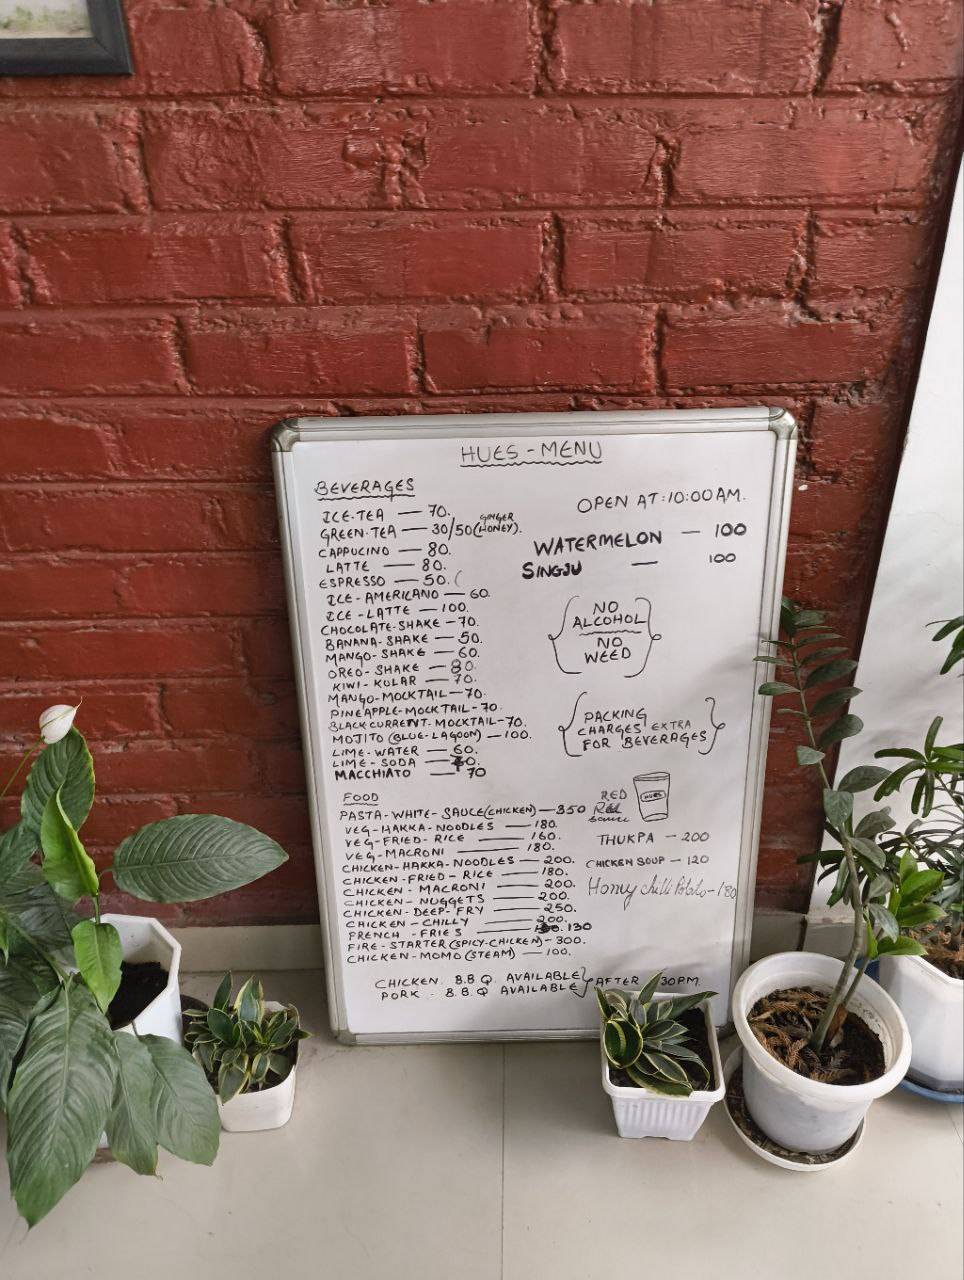 HUES - MENU
BEVERAGES
OPEN AT: 10:00 AM.
ICE-TEA — 70.
GREEN-TEA — 30/50 (GINGER HONEY).
CAPPUCINO — 80.
LATTE — 80.
ESPRESSO — 50. (
ICE-AMERICANO — 60.
ICE-LATTE — 100.
CHOCOLATE-SHAKE — 70.
BANANA-SHAKE — 50.
MANGO-SHAKE — 60.
OREO-SHAKE — 80.
KIWI-KOLAR — 70.
MANGO-MOCKTAIL — 70.
PINEAPPLE-MOCKTAIL - 70.
BLACKCURRENT. MOCKTAIL - 70.
MOJITO (BLUE-LAGOON) — 100.
LIME-WATER — 60.
LIME-SODA — 70.
MACCHIATO — 70
WATERMELON — 100
SINGJU — 100
NO
ALCOHOL
NO
WEED
PACKING
CHARGES EXTRA
FOR BEVERAGES
FOOD
PASTA-WHITE-SAUCE (CHICKEN) — 350
VEG-HAKKA-NOODLES — 180.
VEG-FRIED-RICE — 160.
VEG-MACRONI — 180.
CHICKEN-HAKKA-NOODLES — 200.
CHICKEN-FRIED-RICE — 180.
CHICKEN-MACRONI — 200.
CHICKEN-NUGGETS — 200.
CHICKEN-DEEP-FRY — 250.
CHICKEN-CHILLY — 200.
FRENCH-FRIES — 130
FIRE-STARTER (SPICY-CHICKEN) - 300.
CHICKEN-MOMO (STEAM) — 100.
RED
Red
Sauce
HUES
THUKPA — 200
CHICKEN SOUP — 120
Honey chilli Potato - 180
CHICKEN. B.B.Q. AVAILABLE
PORK. B.B.Q AVAILABLE
AFTER 30PM.